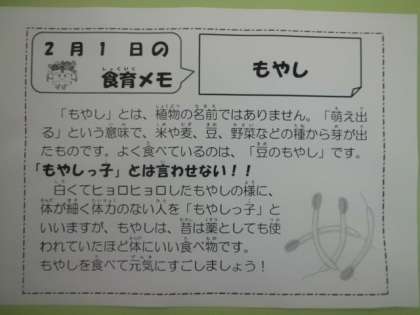 ２月１日の
食育メモ
もやし
「もやし」とは、植物の名前ではありません。「萌え出
る」という意味で、米や麦、豆、野菜などの種から芽が出
たものです。よく食べているのは、「豆のもやし」です。
「もやしっ子」とは言わせない！！
白くてヒョロヒョロしたもやしの様に、
体が細く体力のない人を「もやしっ子」と
いいますが、もやしは、昔は薬としても使
われていたほど体にいい食べ物です。
もやしを食べて元気にすごしましょう！